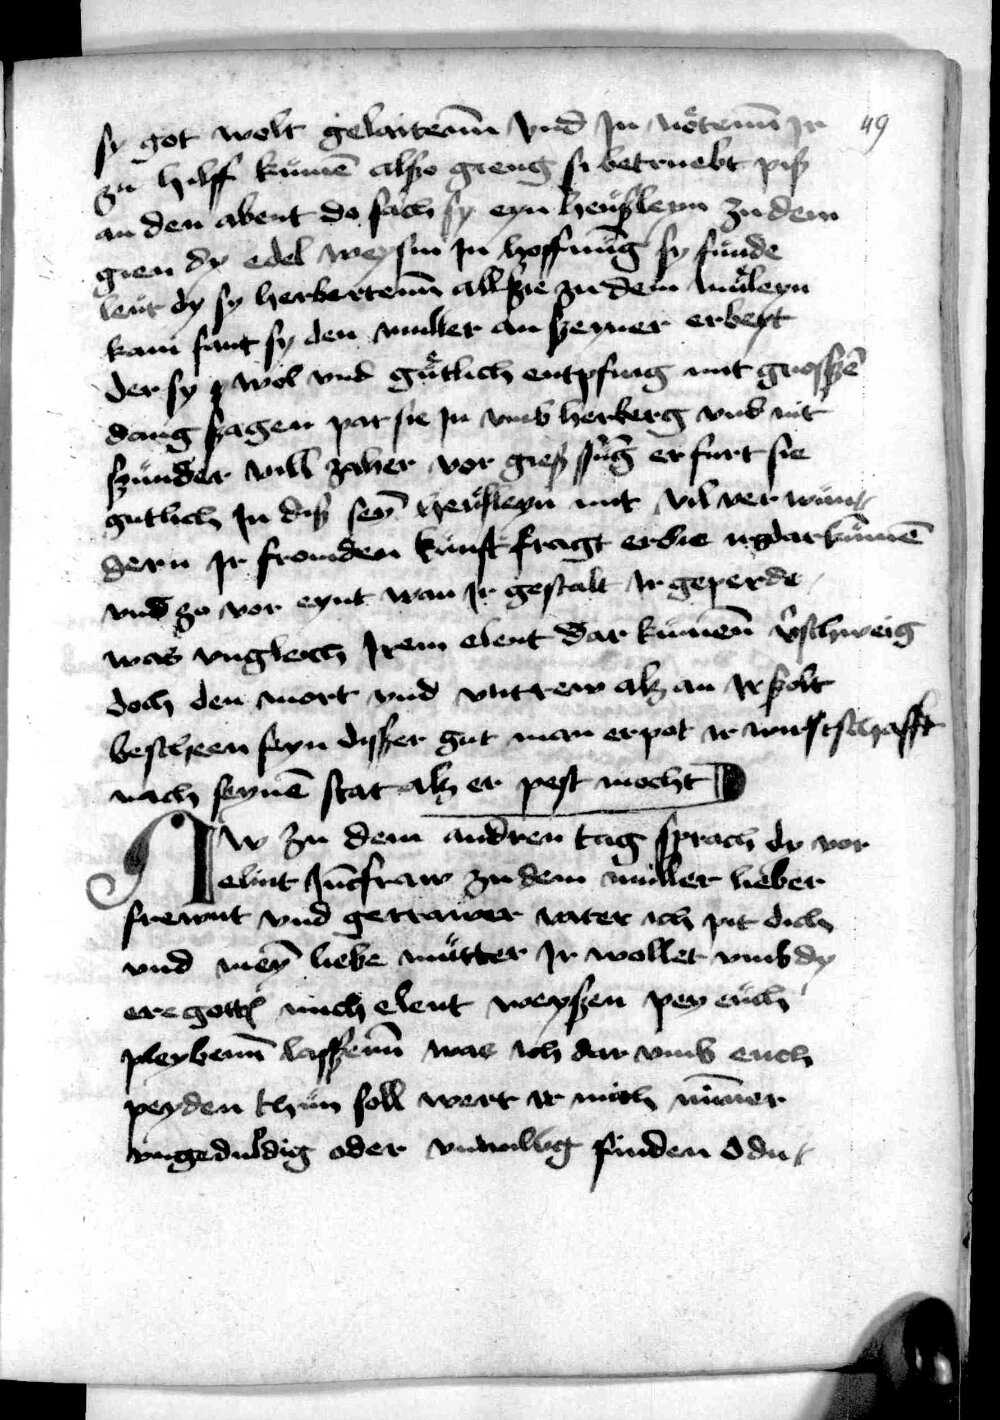 49
sy got wolt gelaitenn̄ vnd In nöttenn̄ Ir
zu hilff kümē alßo gieng si betruebt piß
an den abent do sach sy eyn heüßleyn zu dem
gien dy edel weysin In hoffnūg sy fünde
leüt dy sy herbertenn̄ allß sie zu dem müleyn
kam fant sy den muller an szeyner erbeyt
der sy wol vnd gütlich entpfing mit grosszē
dang szagen pat sie In vmb herberg vnd mit
szunder vill zaher vor gieß er furt sie
gutlich In diß seȳ heüßleyn mit vil ver wün
dern Ir fromden künft fragt er sie dar kümē
vnd zo vor eynt wan Ir gestalt Ir geperde
was vngleich Irem elent dar kümenn v̄schweig
doch den mort vnd vntrew alß an Ir solt
bescheen seyn disser gut man erpot Ir wirtschafft
nach seynē stat alß er pest mocht
Nw zu dem andren tag sprach dy vor
elint Jūcfraw zu dem müller lieber
frewnt vnd getrawer vater ich pit dich
vnd meȳ liebe mütter Ir wollet vmb dy
ere gottes mich elent weyszen pey euch
pleybenn̄ lasszenn̄ was ich dar vmb euch
peyden thün soll wert Ir mich nim̄er
vngeduldig oder vnwillig finden O du